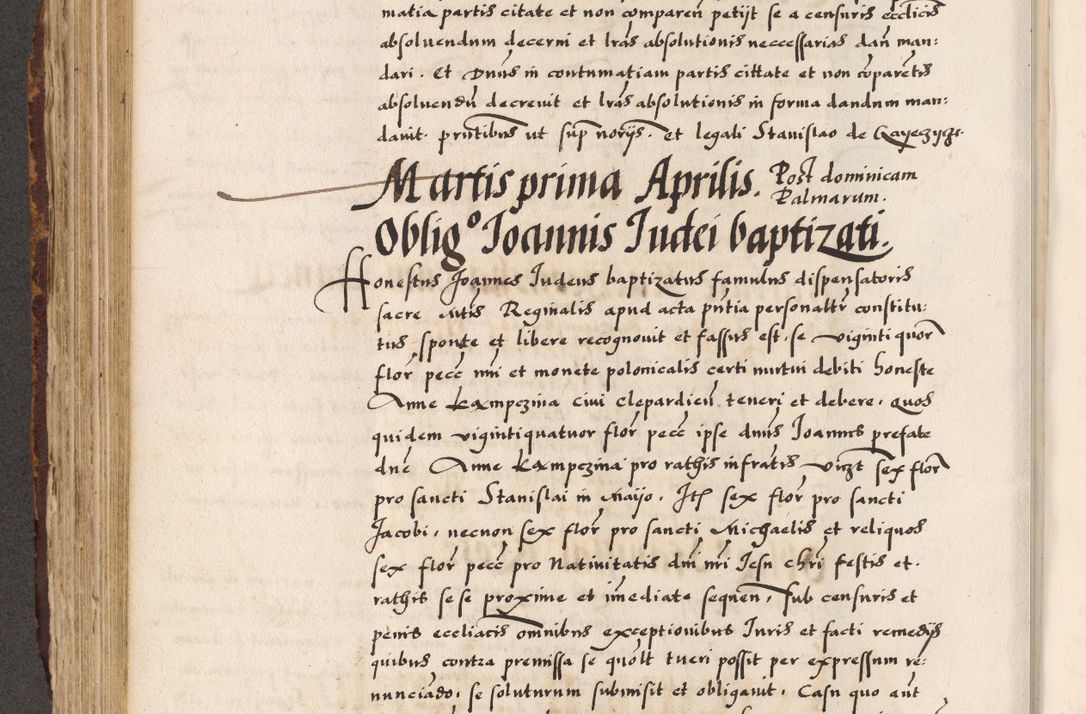 matia partis citate et non comparen petijt se a censuris ecclicis
absoluendum decerni et lras absolutionis neccessarias dari man:
dari. Et Dnus in contumatiam partis cittate et non comparetis
absoluendu decreuit et lras absolutionis in forma dandum man:
dauit. prntibus ut sup norijs. et legali Stanislao de
Martis prima Aprilis. Post dominicam
Palmarum.
Oblig⁰ Joannis Judei baptizati.
Honestus Joannes Judeus baptizatus famulus dispensatoris
sacre Mtis Reginalis apud acta pntia personaltr constitu:
tus sponte et libere recognouit et fassus est, se viginti quor
flor pecc nri et monete polonicalis certi mutui debiti honeste
Anne Kampczina ciui Clepardien teneri et debere. Quos
quidem vigintiquatuor flor pecc ipse dnus Joannes prefate
dne Anne Kampczina pro rathis infratis vizt sex flor
pro sancti Stanislai in Maijo. Itē sex flor pro sancti
Jacobi, necnon sex flor pro sancti Michaelis et reliquos
sex flor pecc pro Natiuitatis dni nri Jesu chri festis et
rathis sese proxime et imediate sequen, sub censuris et
penis eccliacis omnibus exceptionibus Juris et facti remedijs
quibus contra premissa se quolt tueri possit per expressum re:
nunciado, se soluturum submisit et obligauit. Casu quo aut